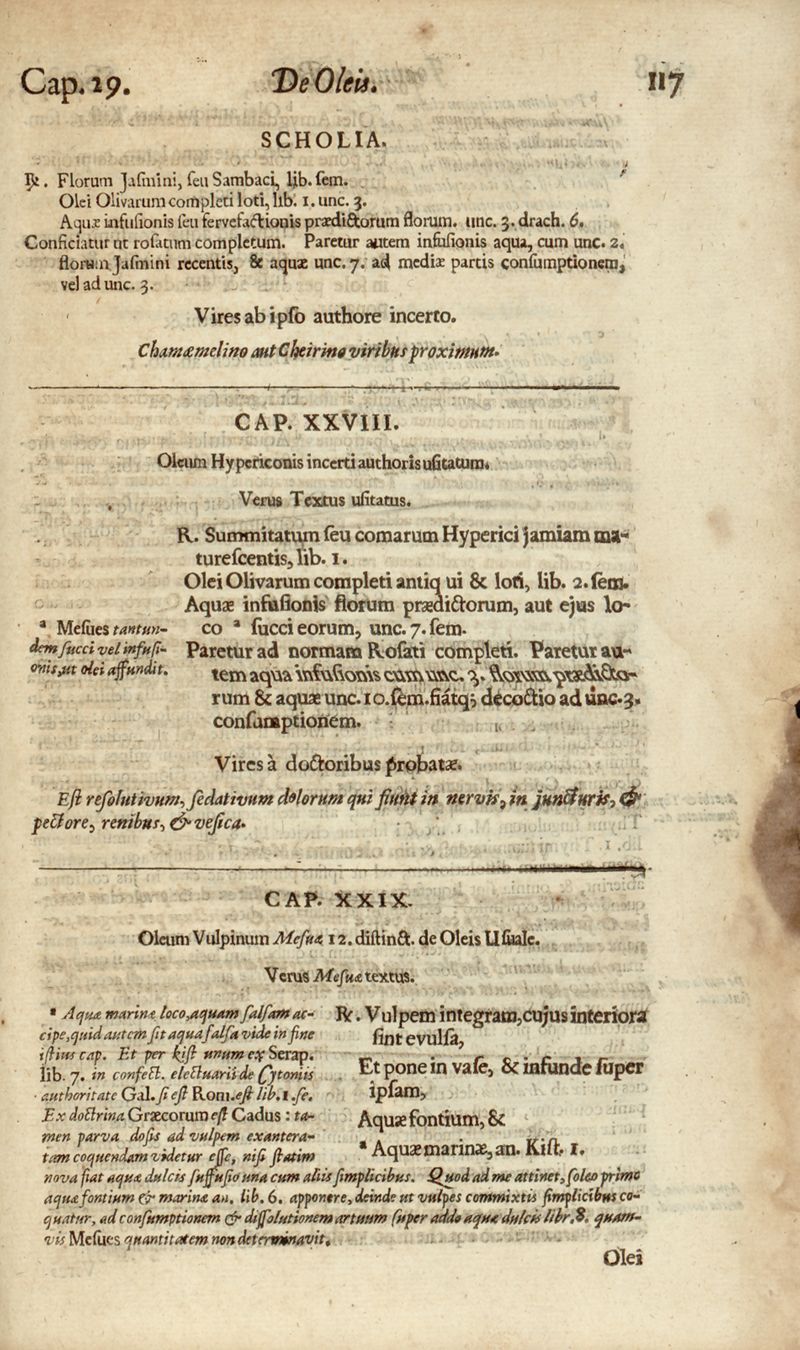 Cap. 29. De Oleis. 117
SCHOLIA.
℞. Florum Jaſmini, ſeu Sambaci, lib. ſem.
Olei Olivarum completi loti, lib. 1. unc. 3.
Aquæ infuſionis ſeu fervefactionis prædictorum florum. unc. 3. drach. 6.
Conficiatur ut roſatum completum. Paretur autem infuſionis aqua, cum unc. 2.
florum Jaſmini recentis, & aquæ unc. 7. ad mediæ partis conſumptionem,
vel ad unc. 3.
Vires ab ipſo authore incerto.
Chamæmelino aut Cheirino viribus proximum.
CAP. XXVIII.
Oleum Hypericonis incerti authoris uſitatum.
Verus Textus uſitatus.
R. Summitatum ſeu comarum Hyperici jamiam ma-
tureſcentis, lib. 1.
Olei Olivarum completi antiq ui & loti, lib. 2. ſem.
Aquæ infuſionis florum prædictorum, aut ejus lo-
co ª ſucci eorum, unc. 7. ſem.
Paretur ad normam Roſati completi. Paretur au-
tem aqua infuſionis cum unc. 3. florum prædicto-
rum & aquæ unc. 10. ſem. fiátq; decoctio ad unc. 3.
conſumptionem.
ª Meſues tantun-
dem ſucci vel infuſi-
onis, ut olei affundit.
Vires à doctoribus probatæ.
Eſt reſolutivum, ſedativum dolorum qui fiunt in nervis, in juncturis, &
pectore, renibus, & veſica.
CAP. XXIX.
Oleum Vulpinum Meſuæ 12. diſtinct. de Oleis Uſuale.
Verus Meſuæ textus.
℞. Vulpem integram, cujus interiora
ſint evulſa,
Et pone in vaſe, & infunde ſuper
ipſam,
Aquæ fontium, &
* Aquæ marinæ, an. Kiſt. 1.
* Aquæ marinæ loco, aquam ſalſam ac-
cipe, quid autem ſit aqua ſalſa vide in fine
iſtius cap. Et per kiſt unum ex Serap.
lib. 7. in confect. electuarii de Cytoniis
authoritate Gal. ſi eſt Rom. eſt lib. 1. ſe.
Ex doctrina Græcorum eſt Cadus: ta-
men parva doſis ad vulpem exantera-
tam coquendam videtur eſſe, niſi ſtatim
nova fiat aquæ dulcis ſuffuſio una cum aliis ſimplicibus. Quod ad me attinet, ſoleo primo
aquæ fontium & marinæ an. lib. 6. apponere, deinde ut vulpes commixtis ſimplicibus co-
quatur, ad conſumptionem & diſſolutionem artuum ſuper addo aquæ dulcis libr. 8. quam-
vis Meſues quantitatem non determinavit.
Olei